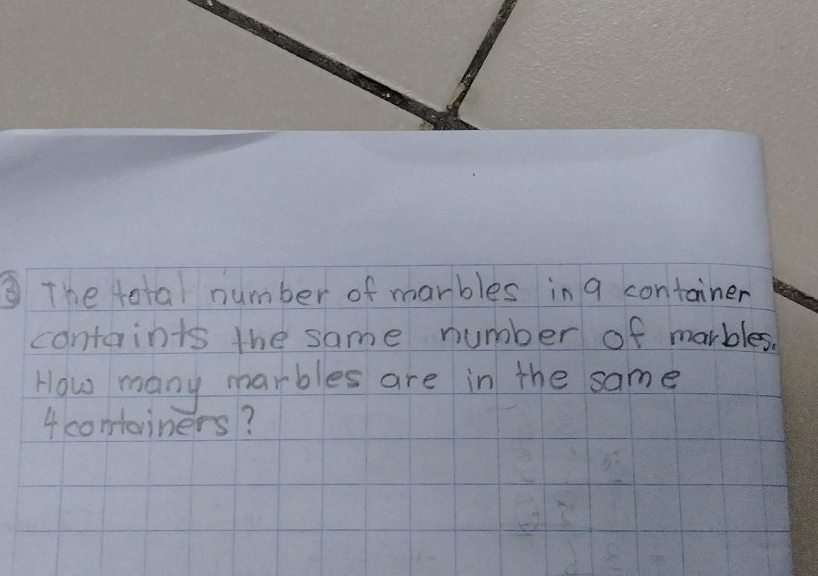 ③ The total number of marbles in 9 container
containts the same number of marbles.
How many marbles are in the same
4 containers?